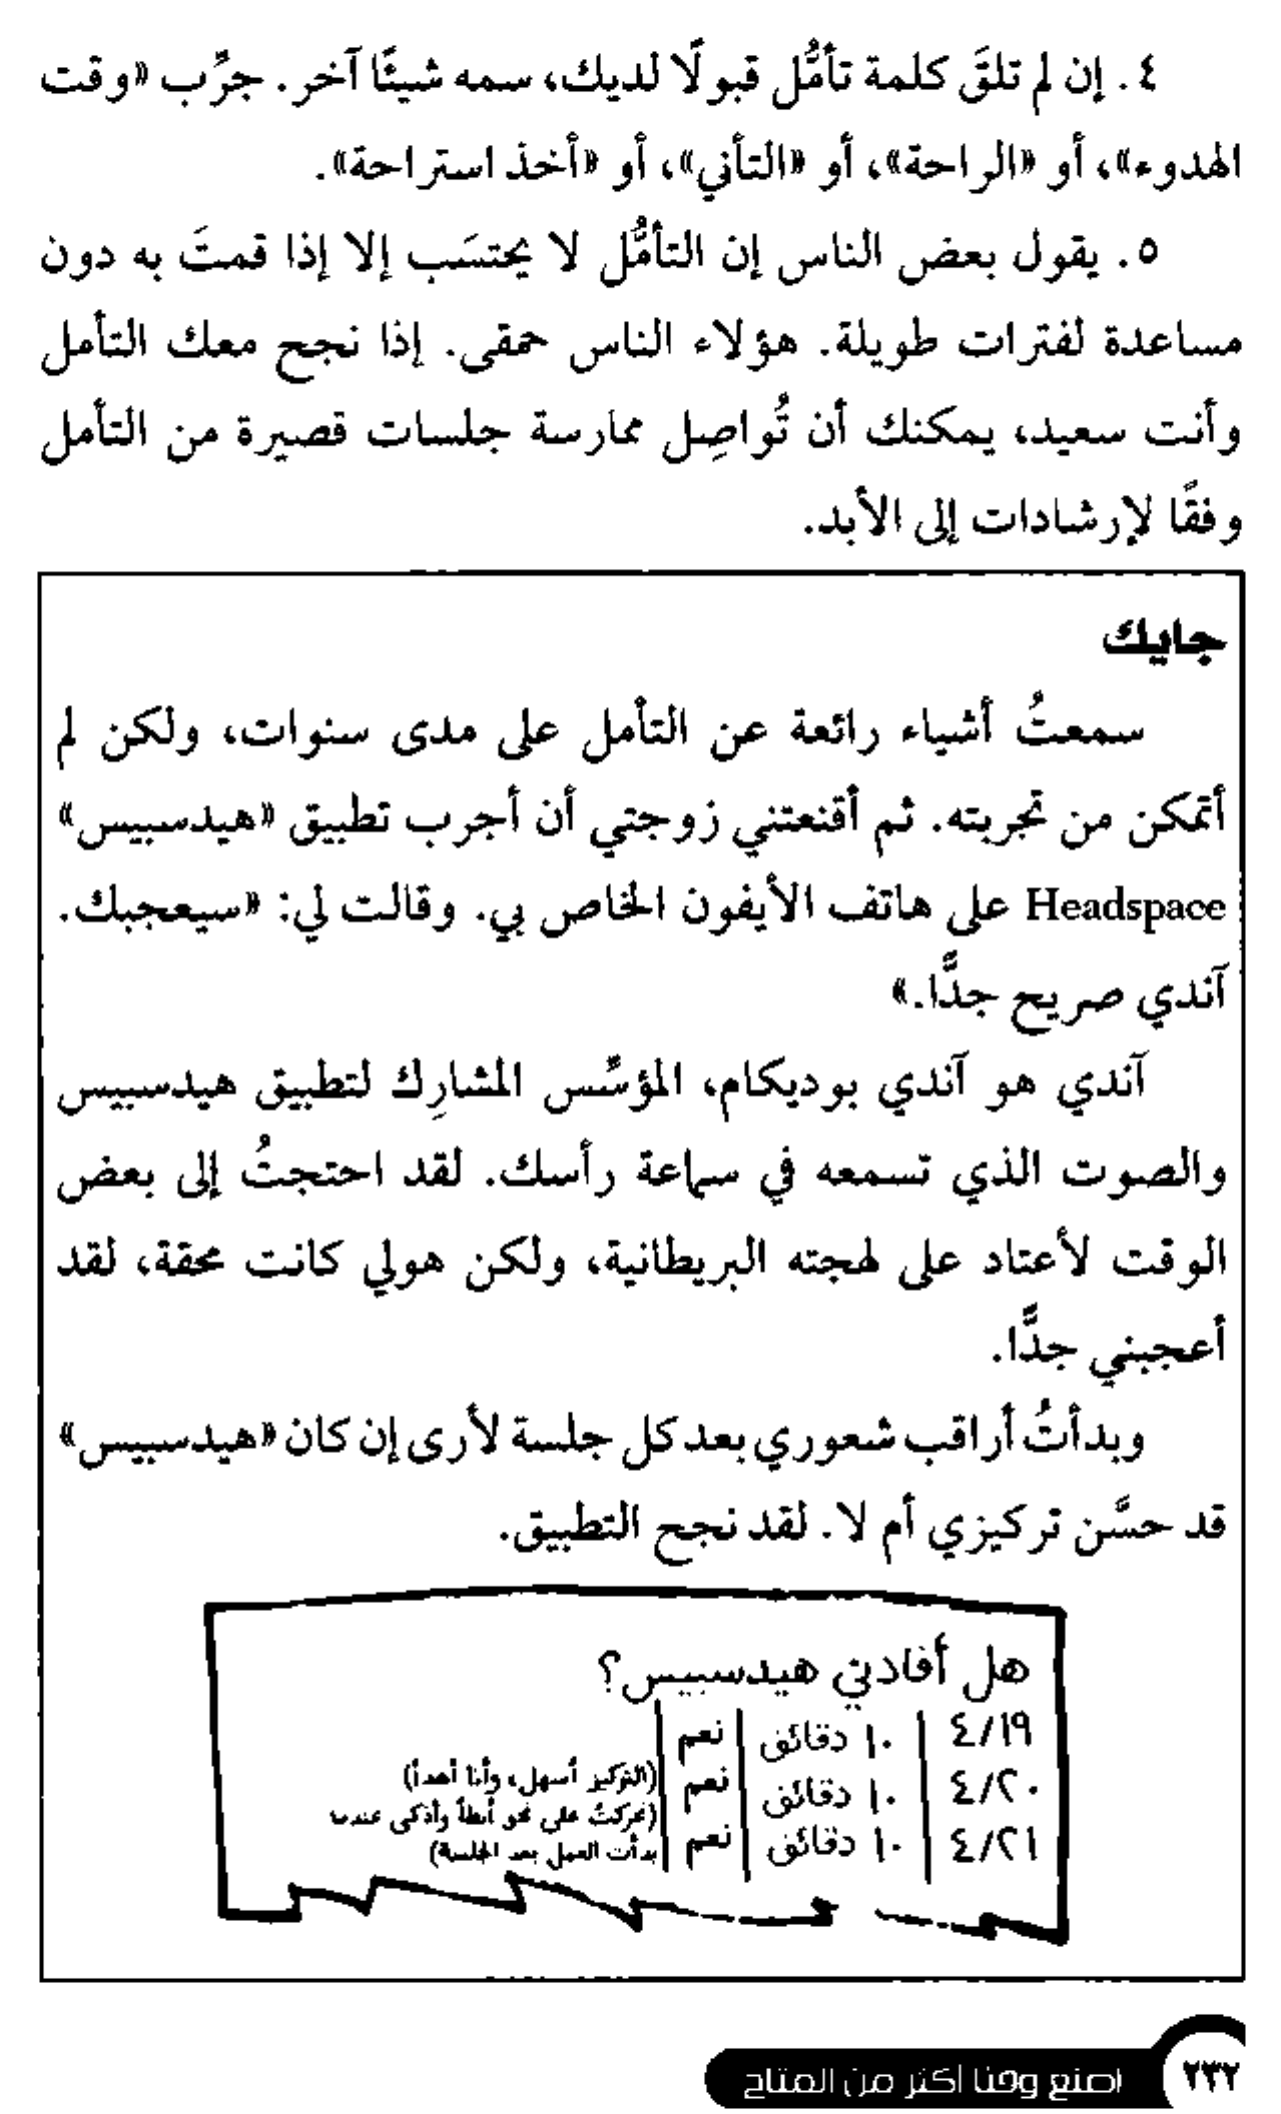 ٤. إن لم تلقَ كلمة تأمُّل قبولًا لديك، سمه شيئًا آخر. جرِّب «وقت
الهدوء»، أو «الراحة»، أو «التأني»، أو «أخذ استراحة».
٥. يقول بعض الناس إن التأمُّل لا يحتسَب إلا إذا قمتَ به دون
مساعدة لفترات طويلة. هؤلاء الناس حمقى. إذا نجح معك التأمل
وأنت سعيد، يمكنك أن تُواصِل ممارسة جلسات قصيرة من التأمل
وفقًا لإرشادات إلى الأبد.
جايك
سمعتُ أشياء رائعة عن التأمل على مدى سنوات، ولكن لم
أتمكن من تجربته. ثم أقنعتني زوجتي أن أجرب تطبيق «هيدسبيس»
Headspace على هاتف الأيفون الخاص بي. وقالت لي: «سيعجبك.
آندي صريح جدًّا.»
آندي هو آندي بوديكام، المؤسِّس المشارِك لتطبيق هيدسبيس
والصوت الذي تسمعه في سماعة رأسك. لقد احتجتُ إلى بعض
الوقت لأعتاد على لهجته البريطانية، ولكن هولي كانت محقة، لقد
أعجبني جدًّا.
وبدأتُ أراقب شعوري بعد كل جلسة لأرى إن كان «هيدسبيس»
قد حسَّن تركيزي أم لا. لقد نجح التطبيق.
هل أفادني هيدسبيس؟
٤/١٩ | ١٠ دقائق | نعم
٤/٢٠ | ١٠ دقائق | نعم (التركيز أسهل، وأنا أهدأ)
٤/٢١ | ١٠ دقائق | نعم (تحركتُ على نحو أبطأ وأذكى عندما
بدأت العمل بعد الجلسة)
٢٣٢ اصنع وقتا أكثر من المتاح